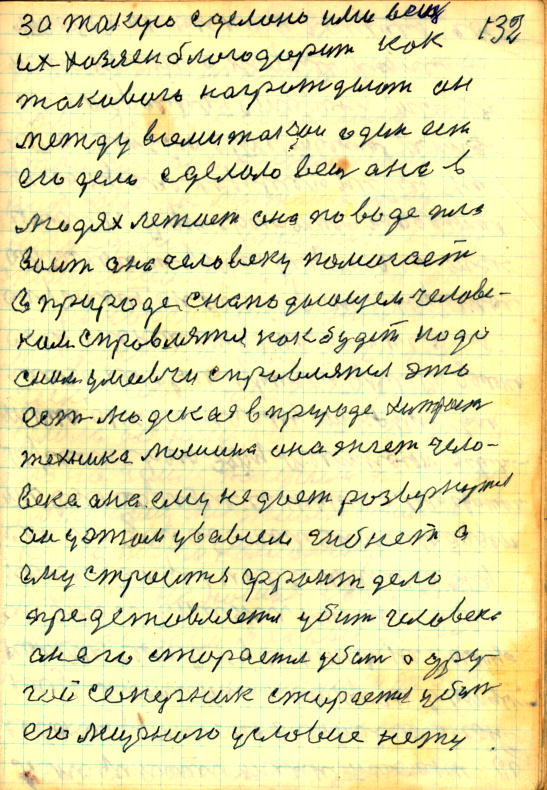 132
за такую сделано или вещ
их хозяен благодарит как
такового награждают он
между всеми такой один ест
его дело сделало вещ ана в
людях летает она по воде пла
вает она человеку помогает
в природе с нападающем челове-
кам справлятся как будет надо
с ним умеючи справлятся это
ест людская в природе хитраст
техника машина она янгет чело-
века ана ему не дает розвернутся
он у этом у во всем гибнет а
ему строится фронт дело
представляется убит человека
он его старается убит а дру-
гой соперник старается убит
его мирного условие нету